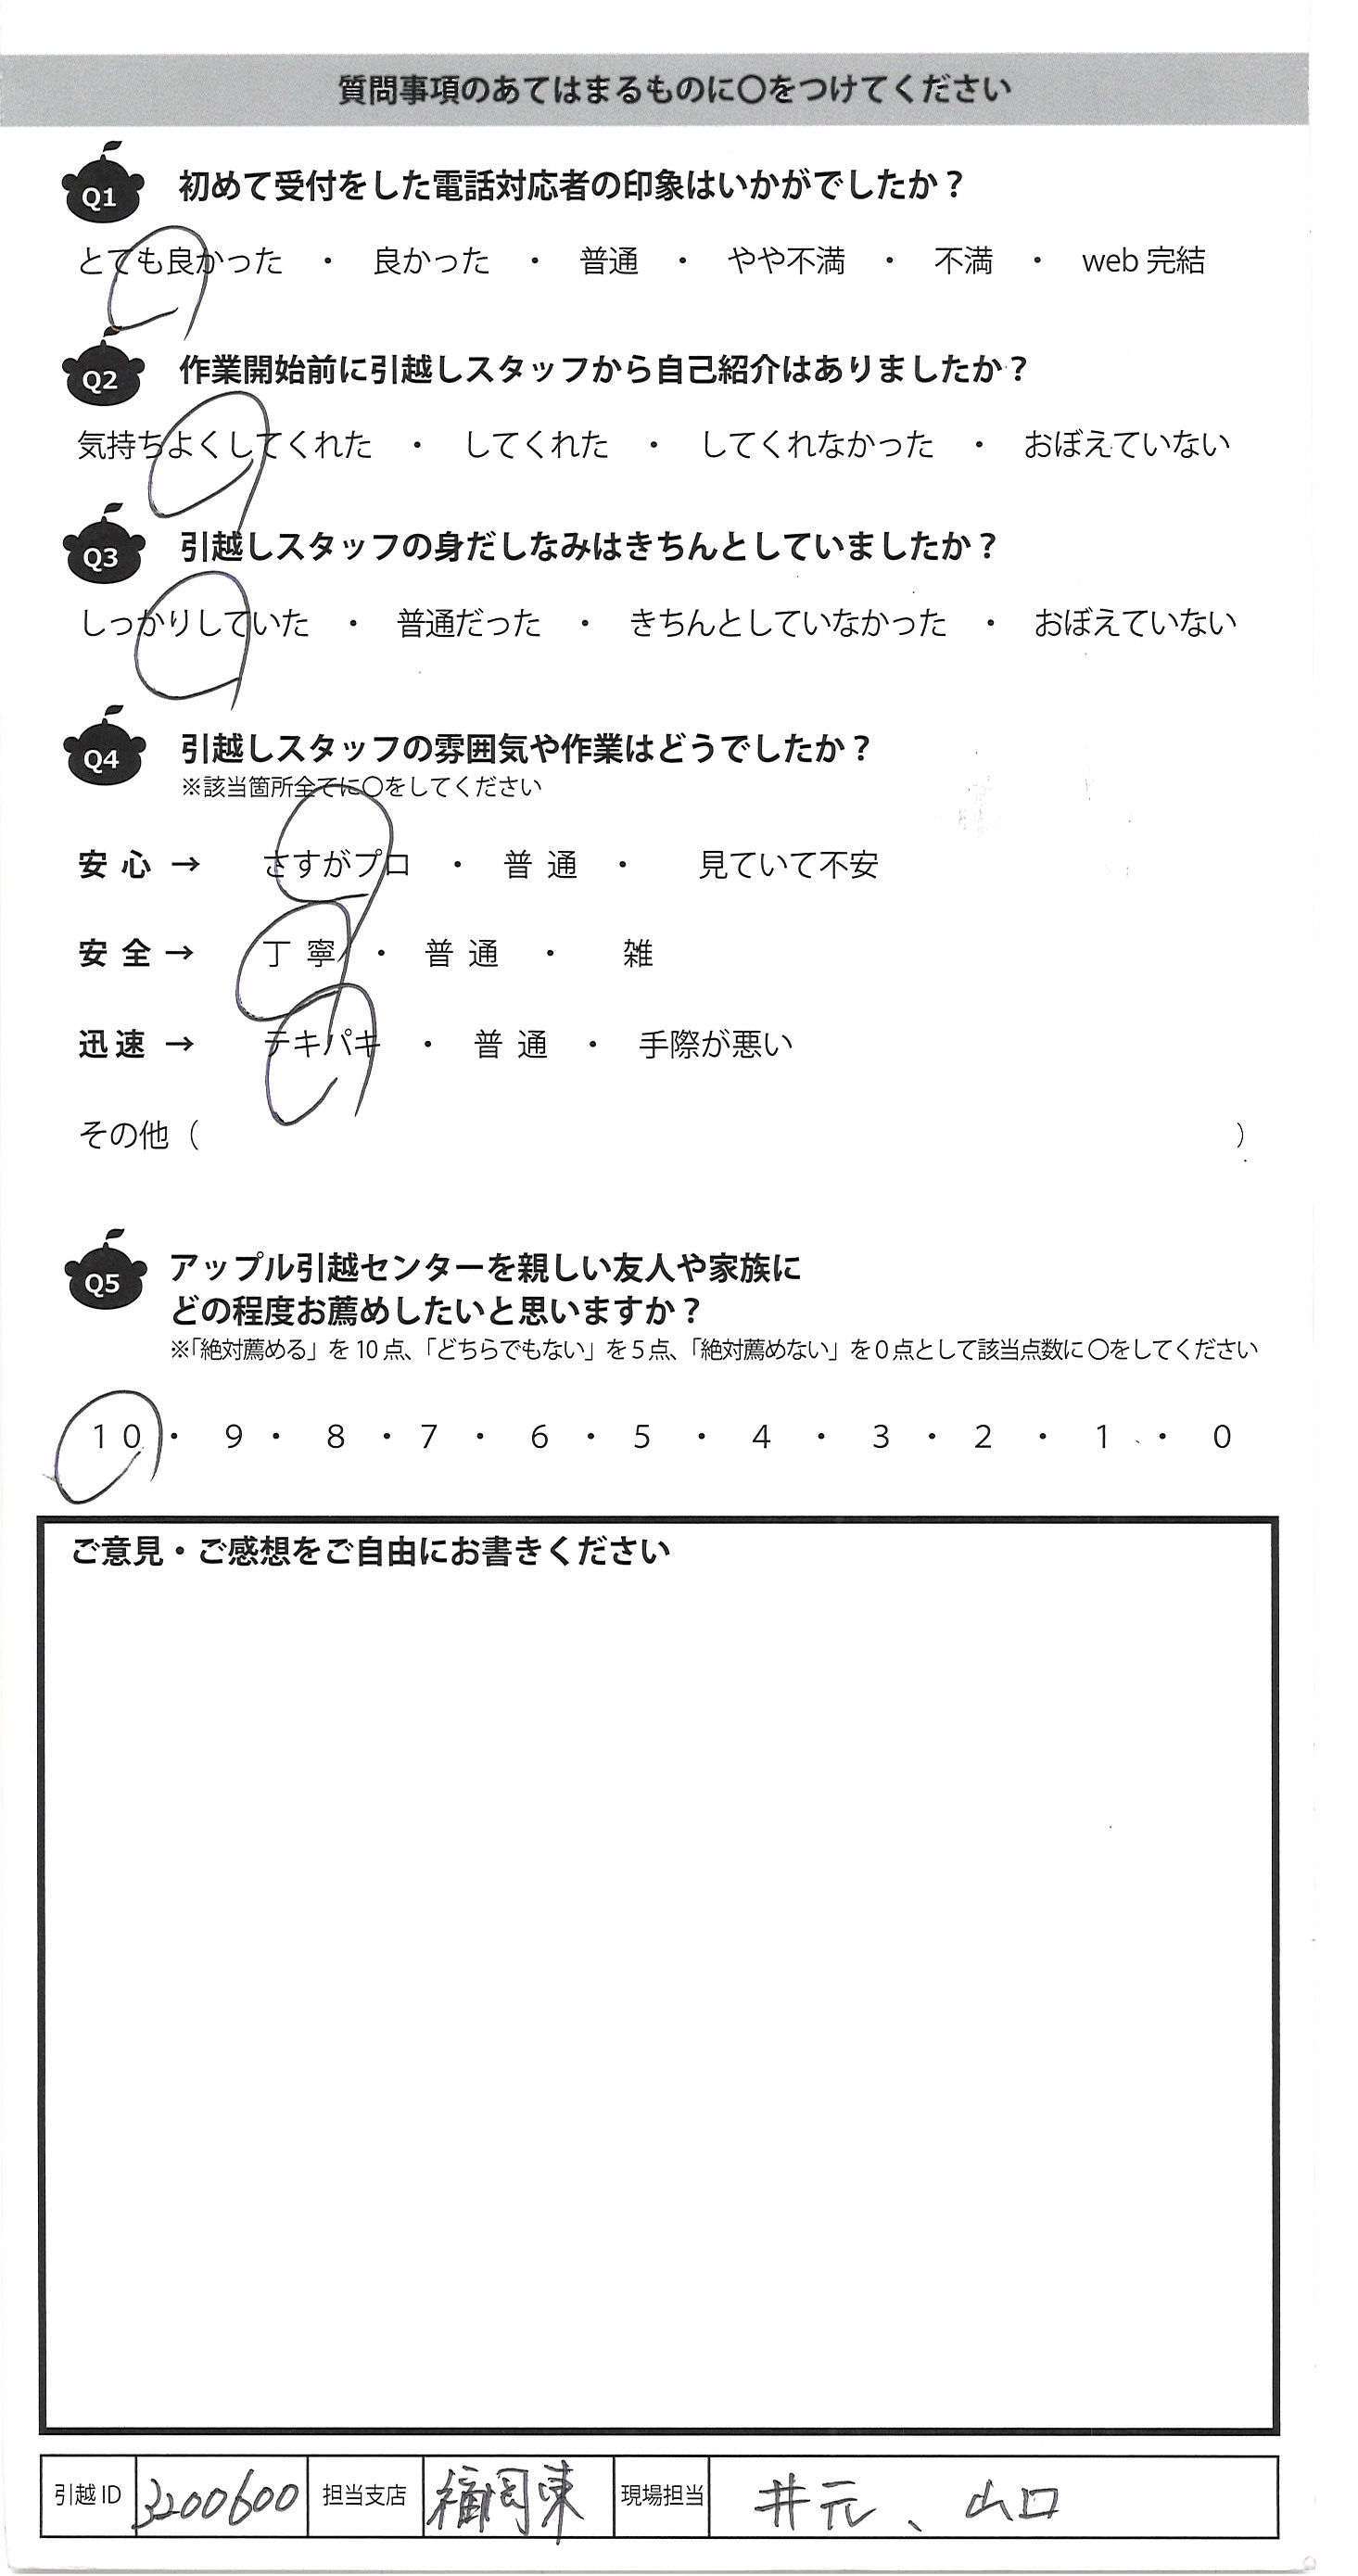 質問事項のあてはまるものに〇をつけてください
Q1 初めて受付をした電話対応者の印象はいかがでしたか？
とても良かった ・ 良かった ・ 普通 ・ やや不満 ・ 不満 ・ web 完結
Q2 作業開始前に引越しスタッフから自己紹介はありましたか？
気持ちよくしてくれた ・ してくれた ・ してくれなかった ・ おぼえていない
Q3 引越しスタッフの身だしなみはきちんとしていましたか？
しっかりしていた ・ 普通だった ・ きちんとしていなかった ・ おぼえていない
Q4 引越しスタッフの雰囲気や作業はどうでしたか？
※該当箇所全てに〇をしてください
安心 → さすがプロ ・ 普通 ・ 見ていて不安
安全 → 丁寧 ・ 普通 ・ 雑
迅速 → テキパキ ・ 普通 ・ 手際が悪い
その他（ ）
Q5 アップル引越センターを親しい友人や家族に
どの程度お薦めしたいと思いますか？
※「絶対薦める」を 10 点、「どちらでもない」を 5 点、「絶対薦めない」を 0 点として該当点数に〇をしてください
10 ・ 9 ・ 8 ・ 7 ・ 6 ・ 5 ・ 4 ・ 3 ・ 2 ・ 1 ・ 0
ご意見・ご感想をご自由にお書きください
引越 ID 3200600 担当支店 福岡東 現場担当 井元、山口